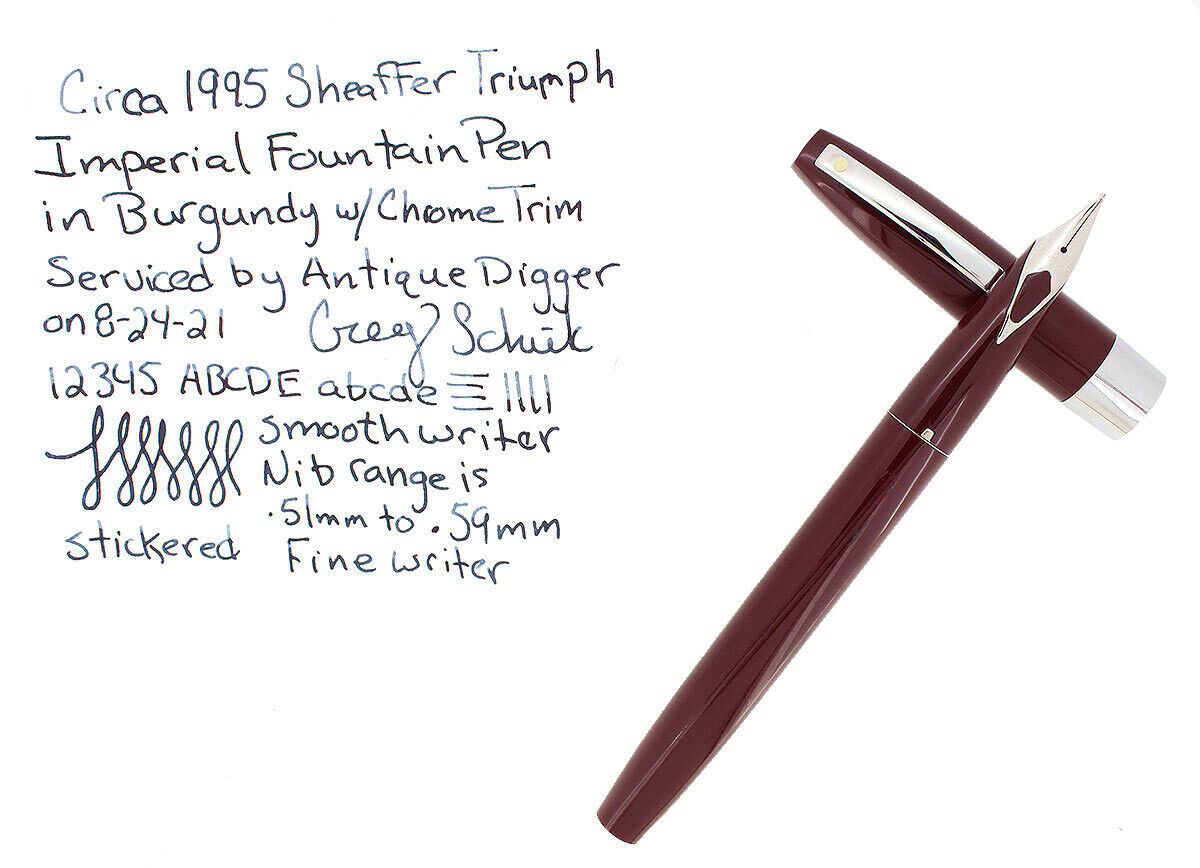 Circa 1995 Sheaffer Triumph
Imperial Fountain Pen
in Burgundy w/ Chrome Trim
Serviced by Antique Digger
on 8-24-21 Greg
12345 ABCDE abcde
smooth writer
Nib range is
.51mm to .59mm
stickered Fine writer